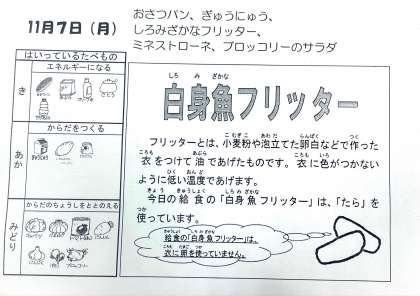 11月7日（月）
おさつパン、ぎゅうにゅう、
しろみざかなフリッター、
ミネストローネ、ブロッコリーのサラダ
はいっているたべもの
き
エネルギーになる
さとう
あか
からだをつくる
ぎゅうにゅう
みどり
からだのちょうしをととのえる
にんにく
たまねぎ
キャベツ
ブロッコリー
しろみざかな
白身魚フリッター
フリッターとは、小麦粉や泡立てた卵白などで作った
衣をつけて油であげたものです。衣に色がつかない
ように低い温度であげます。
今日の給食の「白身魚フリッター」は、「たら」を
使っています。
給食の「白身魚フリッター」は、
衣に卵を使っていません。